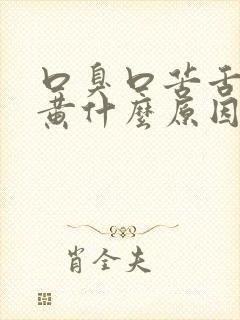 口臭口苦舌
黄什麼原因
肖全夫